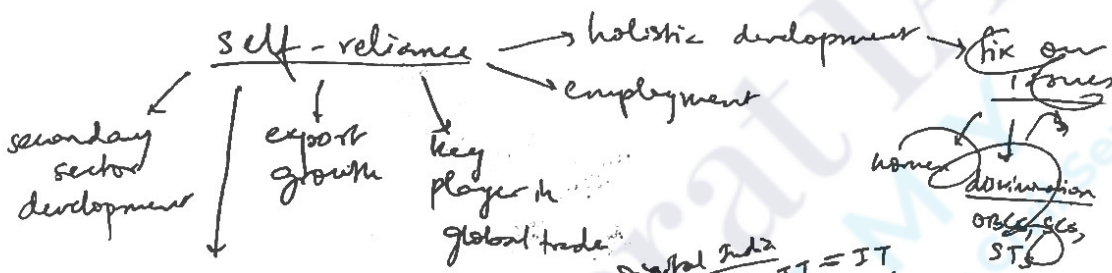 self-reliance
holistic development
fix our
issues
employment
secondary
sector
development
export
growth
key
player in
global trade
women
discrimination
OBCs, SCs,
STs
Digital India
IT = IT